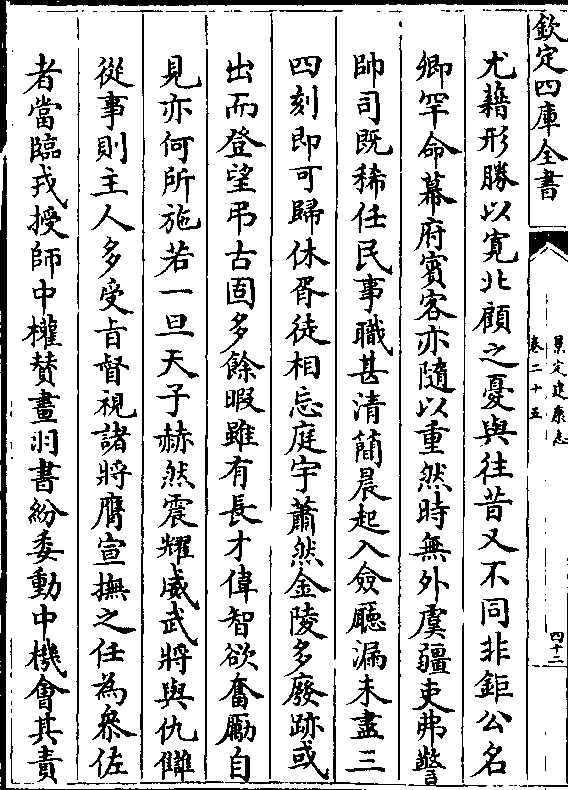 欽定四庫全書
景定建康志
卷二十五
四十二
尤藉形勝以寛北顧之憂與往昔又不同非鉅公名
卿罕命幕府賓客亦隨以重然時無外虞疆吏弗警
帥司既稀任民事職甚清簡晨起入僉廳漏未盡三
四刻即可歸休胥徒相忘庭宇蕭然金陵多廢跡或
出而登望弔古固多餘暇雖有長才偉智欲奮勵自
見亦何所施若一旦天子赫然震耀威武將與仇讎
從事則主人多受㫖督視諸將膺宣撫之任為叅佐
者當臨戎授師中權賛畫羽書紛委動中機會其責